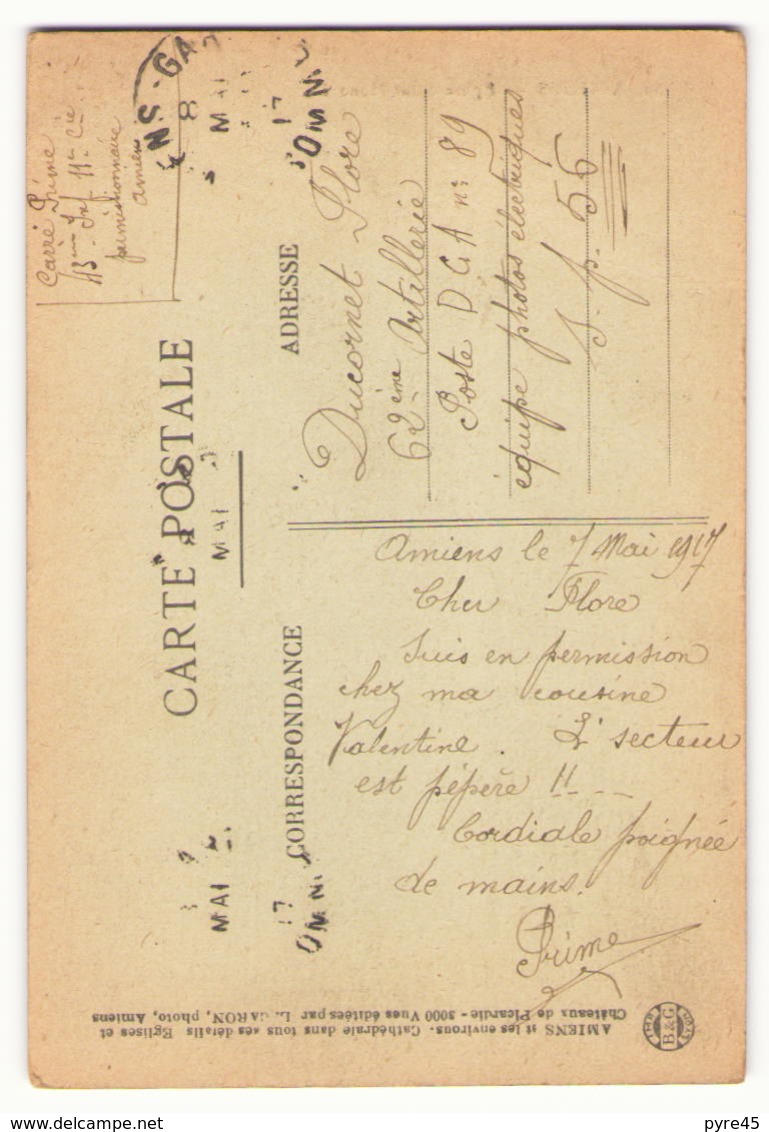 Carré Prime
43ème Inf. 11e Cie
permissionnaire
Amiens
ENS-GA
8
MAI
17
SOMME
CARTE POSTALE
ADRESSE
Ducornet Flore
62ème Artillerie
Poste D C A n: 89
équipe photos électriques
S. p. 56
MAI
CORRESPONDANCE
Amiens le 7 Mai 1917
Cher Flore
Suis en permission
chez ma cousine
Valentine. L' secteur
est pépère !!
Cordiale poignée
de mains.
Prime
MAI
17
AMIENS et les environs. Cathédrale dans tous ses détails Eglises et
Châteaux de Picardie - 3000 Vues éditées par L. CARON, photo, Amiens
B&G
www.delcampe.net
pyre45